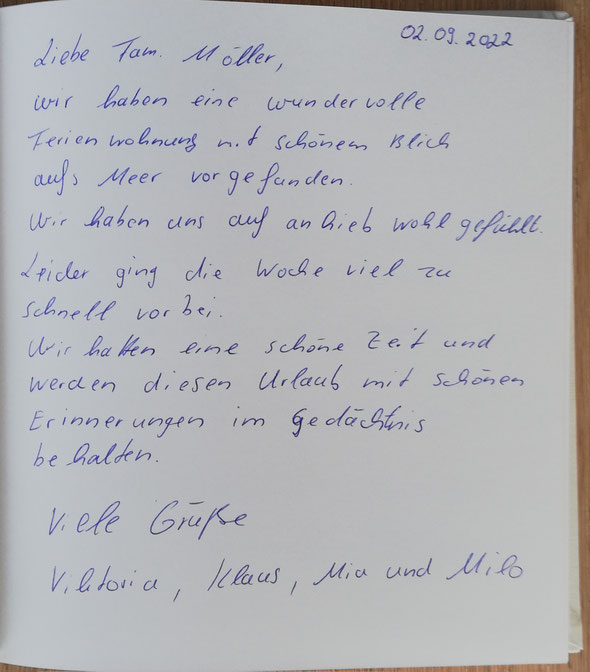 02.09.2022
Liebe Fam. Möller,
wir haben eine wundervolle
Ferienwohnung mit schönem Blick
aufs Meer vorgefunden.
Wir haben uns auf anhieb wohl gefühlt.
Leider ging die Woche viel zu
schnell vorbei.
Wir hatten eine schöne Zeit und
werden diesen Urlaub mit schönen
Erinnerungen im Gedächtnis
behalten.
Viele Grüße
Viktoria, Klaus, Mia und Milo